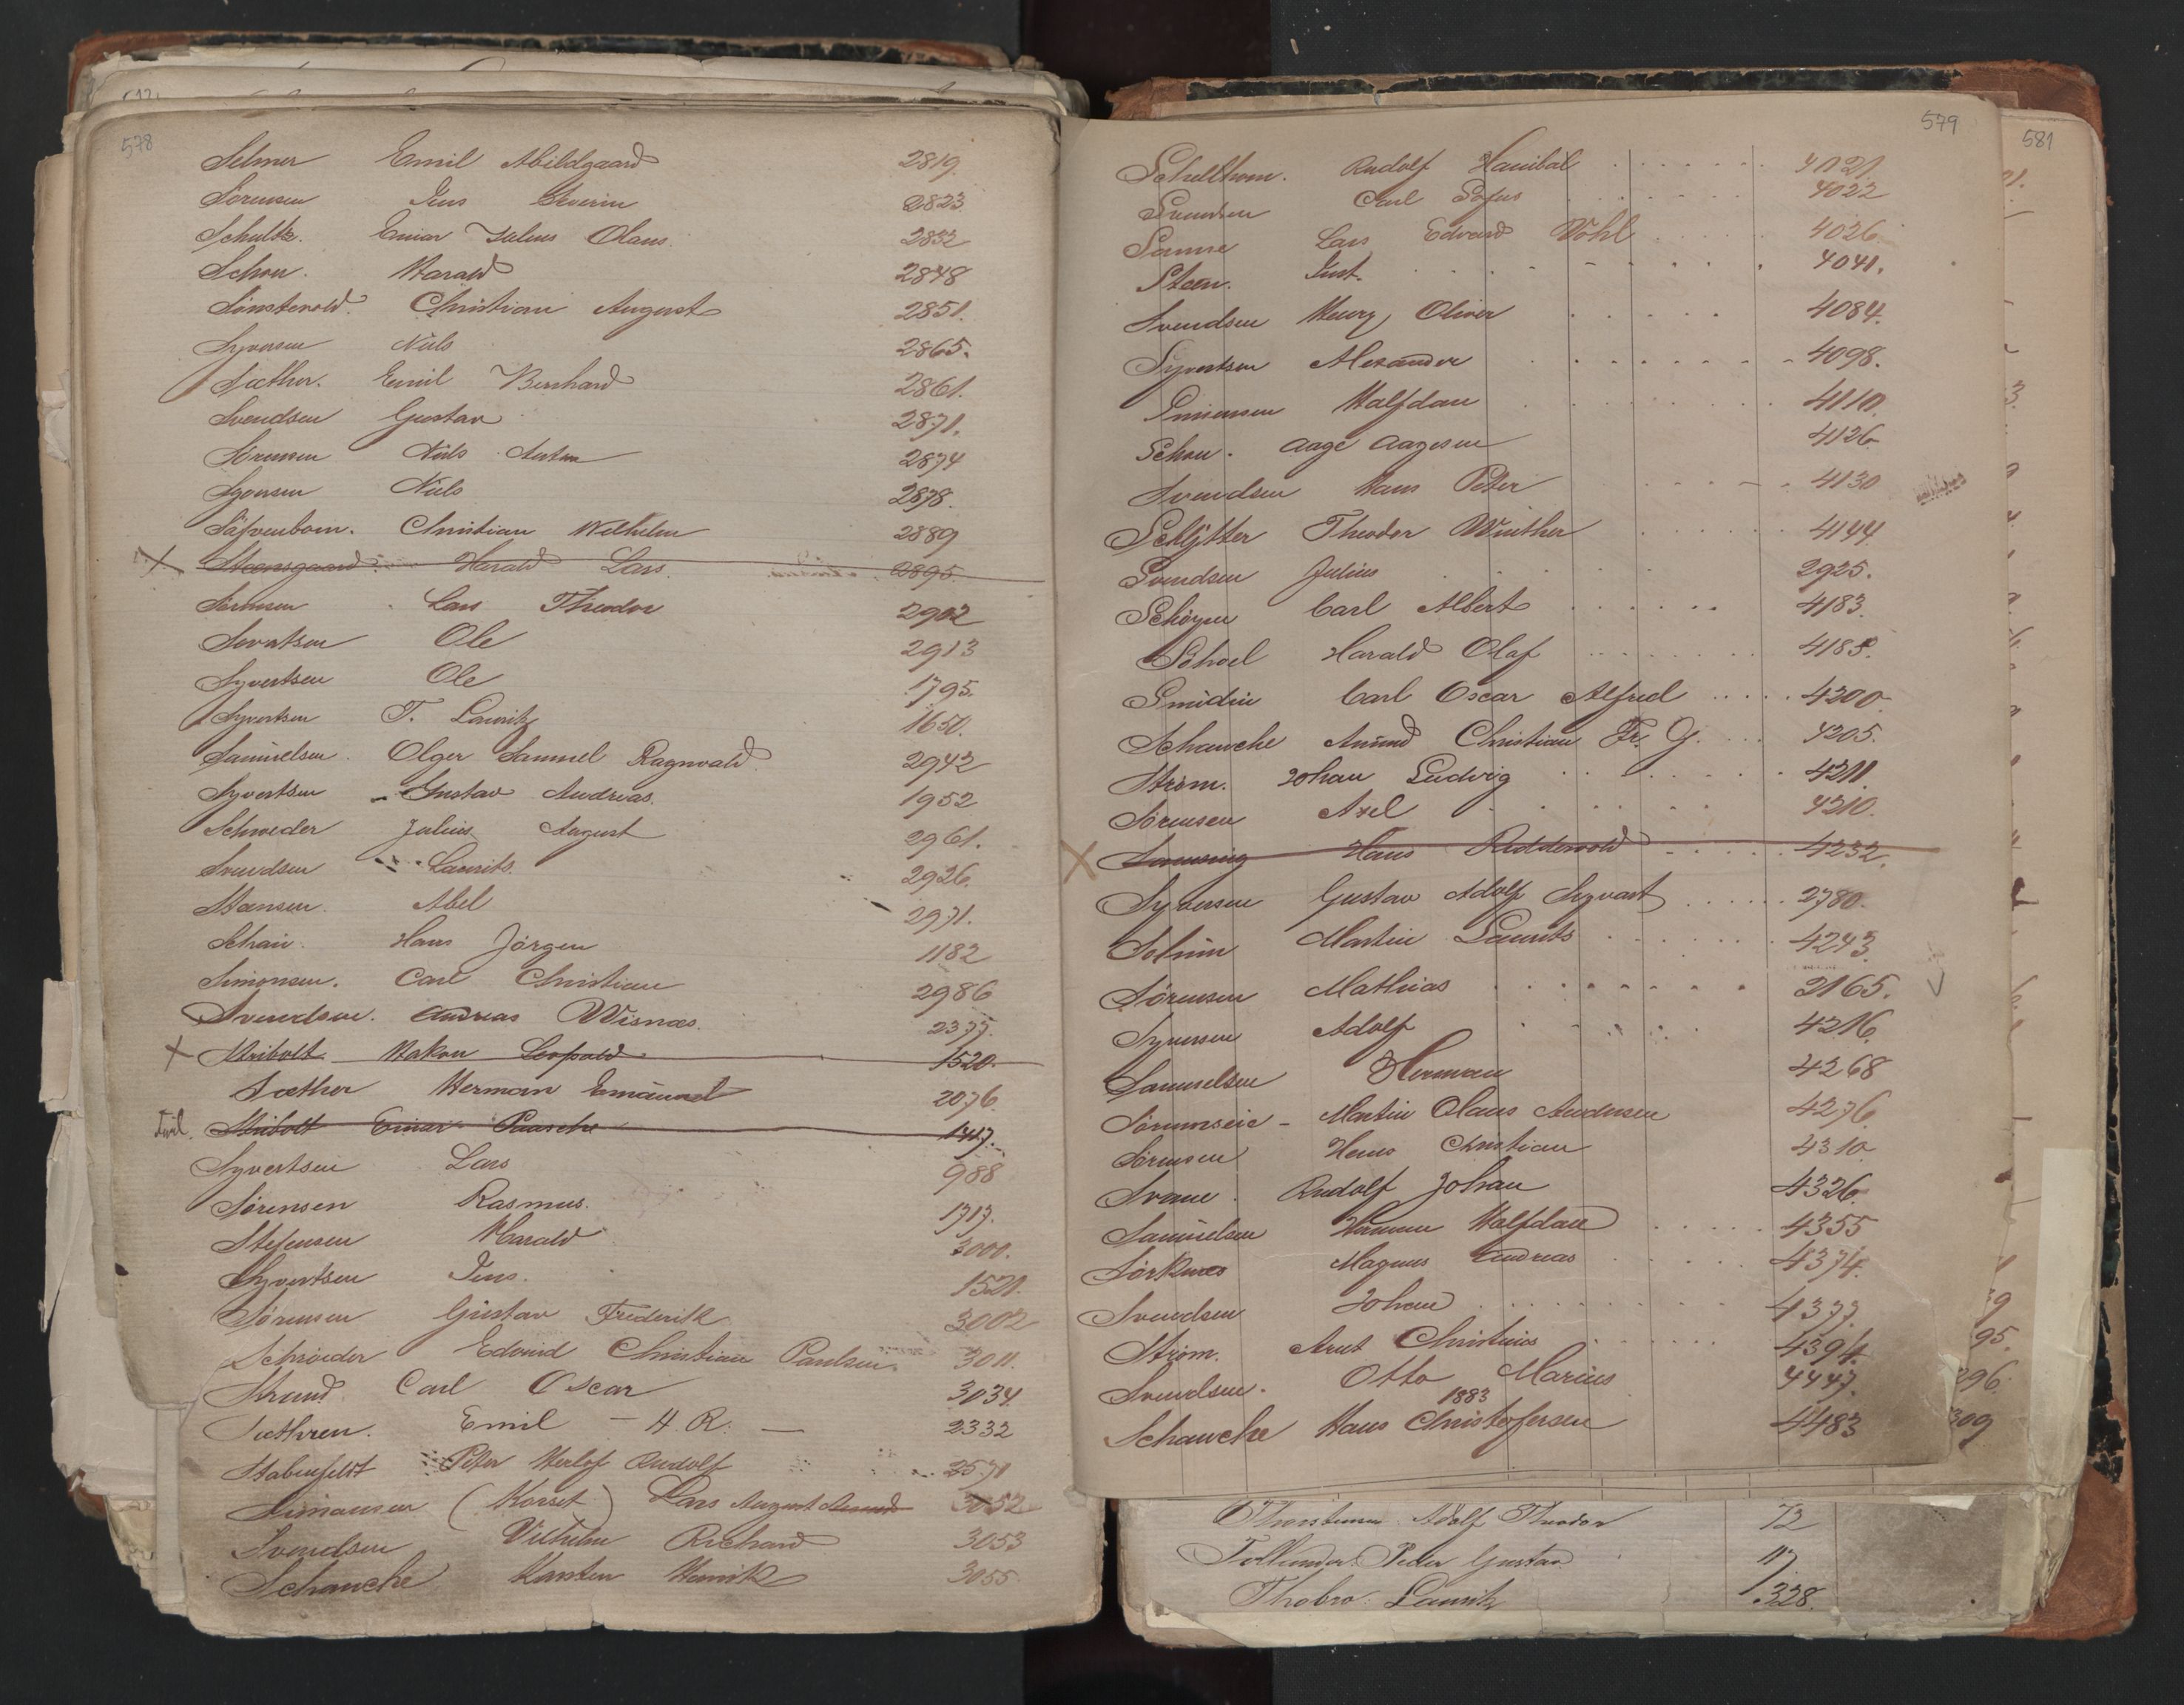 578
Selmer Emil Abildgaard 2819.
Sørensen Jens Severin 2823
Schultz. Einar Julius Olaus. 2832
Schou. Harald 2848
Sönstevold. Christian August 2851.
Syversen Nils 2865.
Sæther. Emil Bernhard 2861.
Svendsen Gustav 2871.
Sörensen Nils Anton 2874
Syversen Nils 2878.
Christian Wilhelm 2889
X Steensgaard Harald Lars. 2895
Sörensen Lars Theodor 2902
Ole 2913
Syvertsen Ole 1795.
Syvertsen T. Lauritz 1650.
Samuelsen. Olger Samuel Ragnvald. 2942
Syvertsen Gustav Andreas. 1952
Schrøder Julius August 2961.
Svendsen Laurits. 2926.
Steensen. Abel 2971.
Hans Jörgen 1182
Simonsen. Carl Christian 2986
Svendsen. Andreas Wisnæs. 2377.
X Stribolt Hakon Leopold 1520.
Sæther Herman Emanuel 2076.
Stribolt Einar Paasche 1417.
Syvertsen Lars 988
Sørensen Rasmus. 1717.
Stefensen Harald 3000.
Syvertsen Jens. 1521.
Sørensen Gustav Frederik 3002
Schrøder Edvard Christian Paulsen. 3011.
Strand Carl Oscar 3034.
Sæthren. Emil — H. R. — 2332
Stabenfeldt Peter Herlof Rudolf 2571
Simansen (Korset) Lars August 3052
Svendsen Vilhelm Richard 3053
Schancke Karsten Henrik 3055
579
581
Rudolf Hanibal 4021.
Svendsen Carl Sofus 4022
Sanne Lars Edvard Wohl 4026
Steen. Just. 4041.
Svendsen Henry Oliver 4084.
Syvertsen Alexander 4098.
Simensen Halfdan 4110.
Schou. Aage Aagesen 4126
Svendsen Hans Peter 4130
Schlytter Theodor Winther 4144
Svendsen Julius 2925.
Schøyen Carl Albert 4183.
Schoel Harald Olaf 4185.
Smidin Carl Oscar Alfred 4200
Schancke Amund Christian Fr. G. 4205.
Strøm. Johan Ludvig 4211.
Sørensen Axel 4210.
X Hans Riddervold 4232.
Syversen Gustav Adolf Syvart 2780.
Solum Martin Laurits 4243.
Sørensen Mathias 2165.
Syversen Adolf 4216.
Samuelsen Herman 4268
Martin Olaus Andersen 4276.
Sørensen Hans Christian 4310
Svane. Rudolf Johan 4326.
Samuelsen Herman Halfdan 4355
Sørknes Magnus Andreas 4374.
Svendsen Johan 4377.
Strøm. Arnt Christinius 4394.
Svendsen. Otto Marius 4447.
1883
Schancke Hans Christofersen 4483
95.
296.
309
Thorstensen Adolf Theodor 72
Peder Gustav 117
Thobro. Lauritz 328.